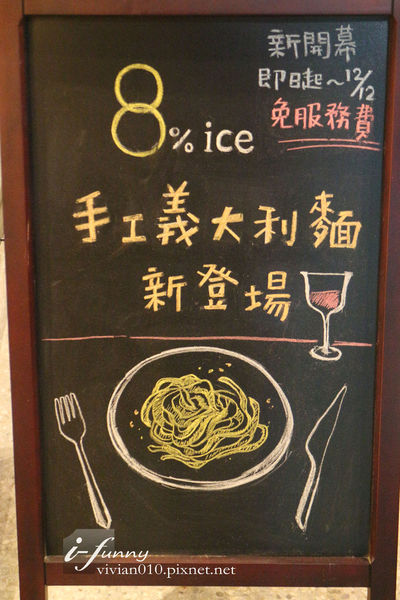 新開幕
即日起~12/12
免服務費
8% ice
手工義大利麵
新登場
i-funny
vivian010.pixnet.net